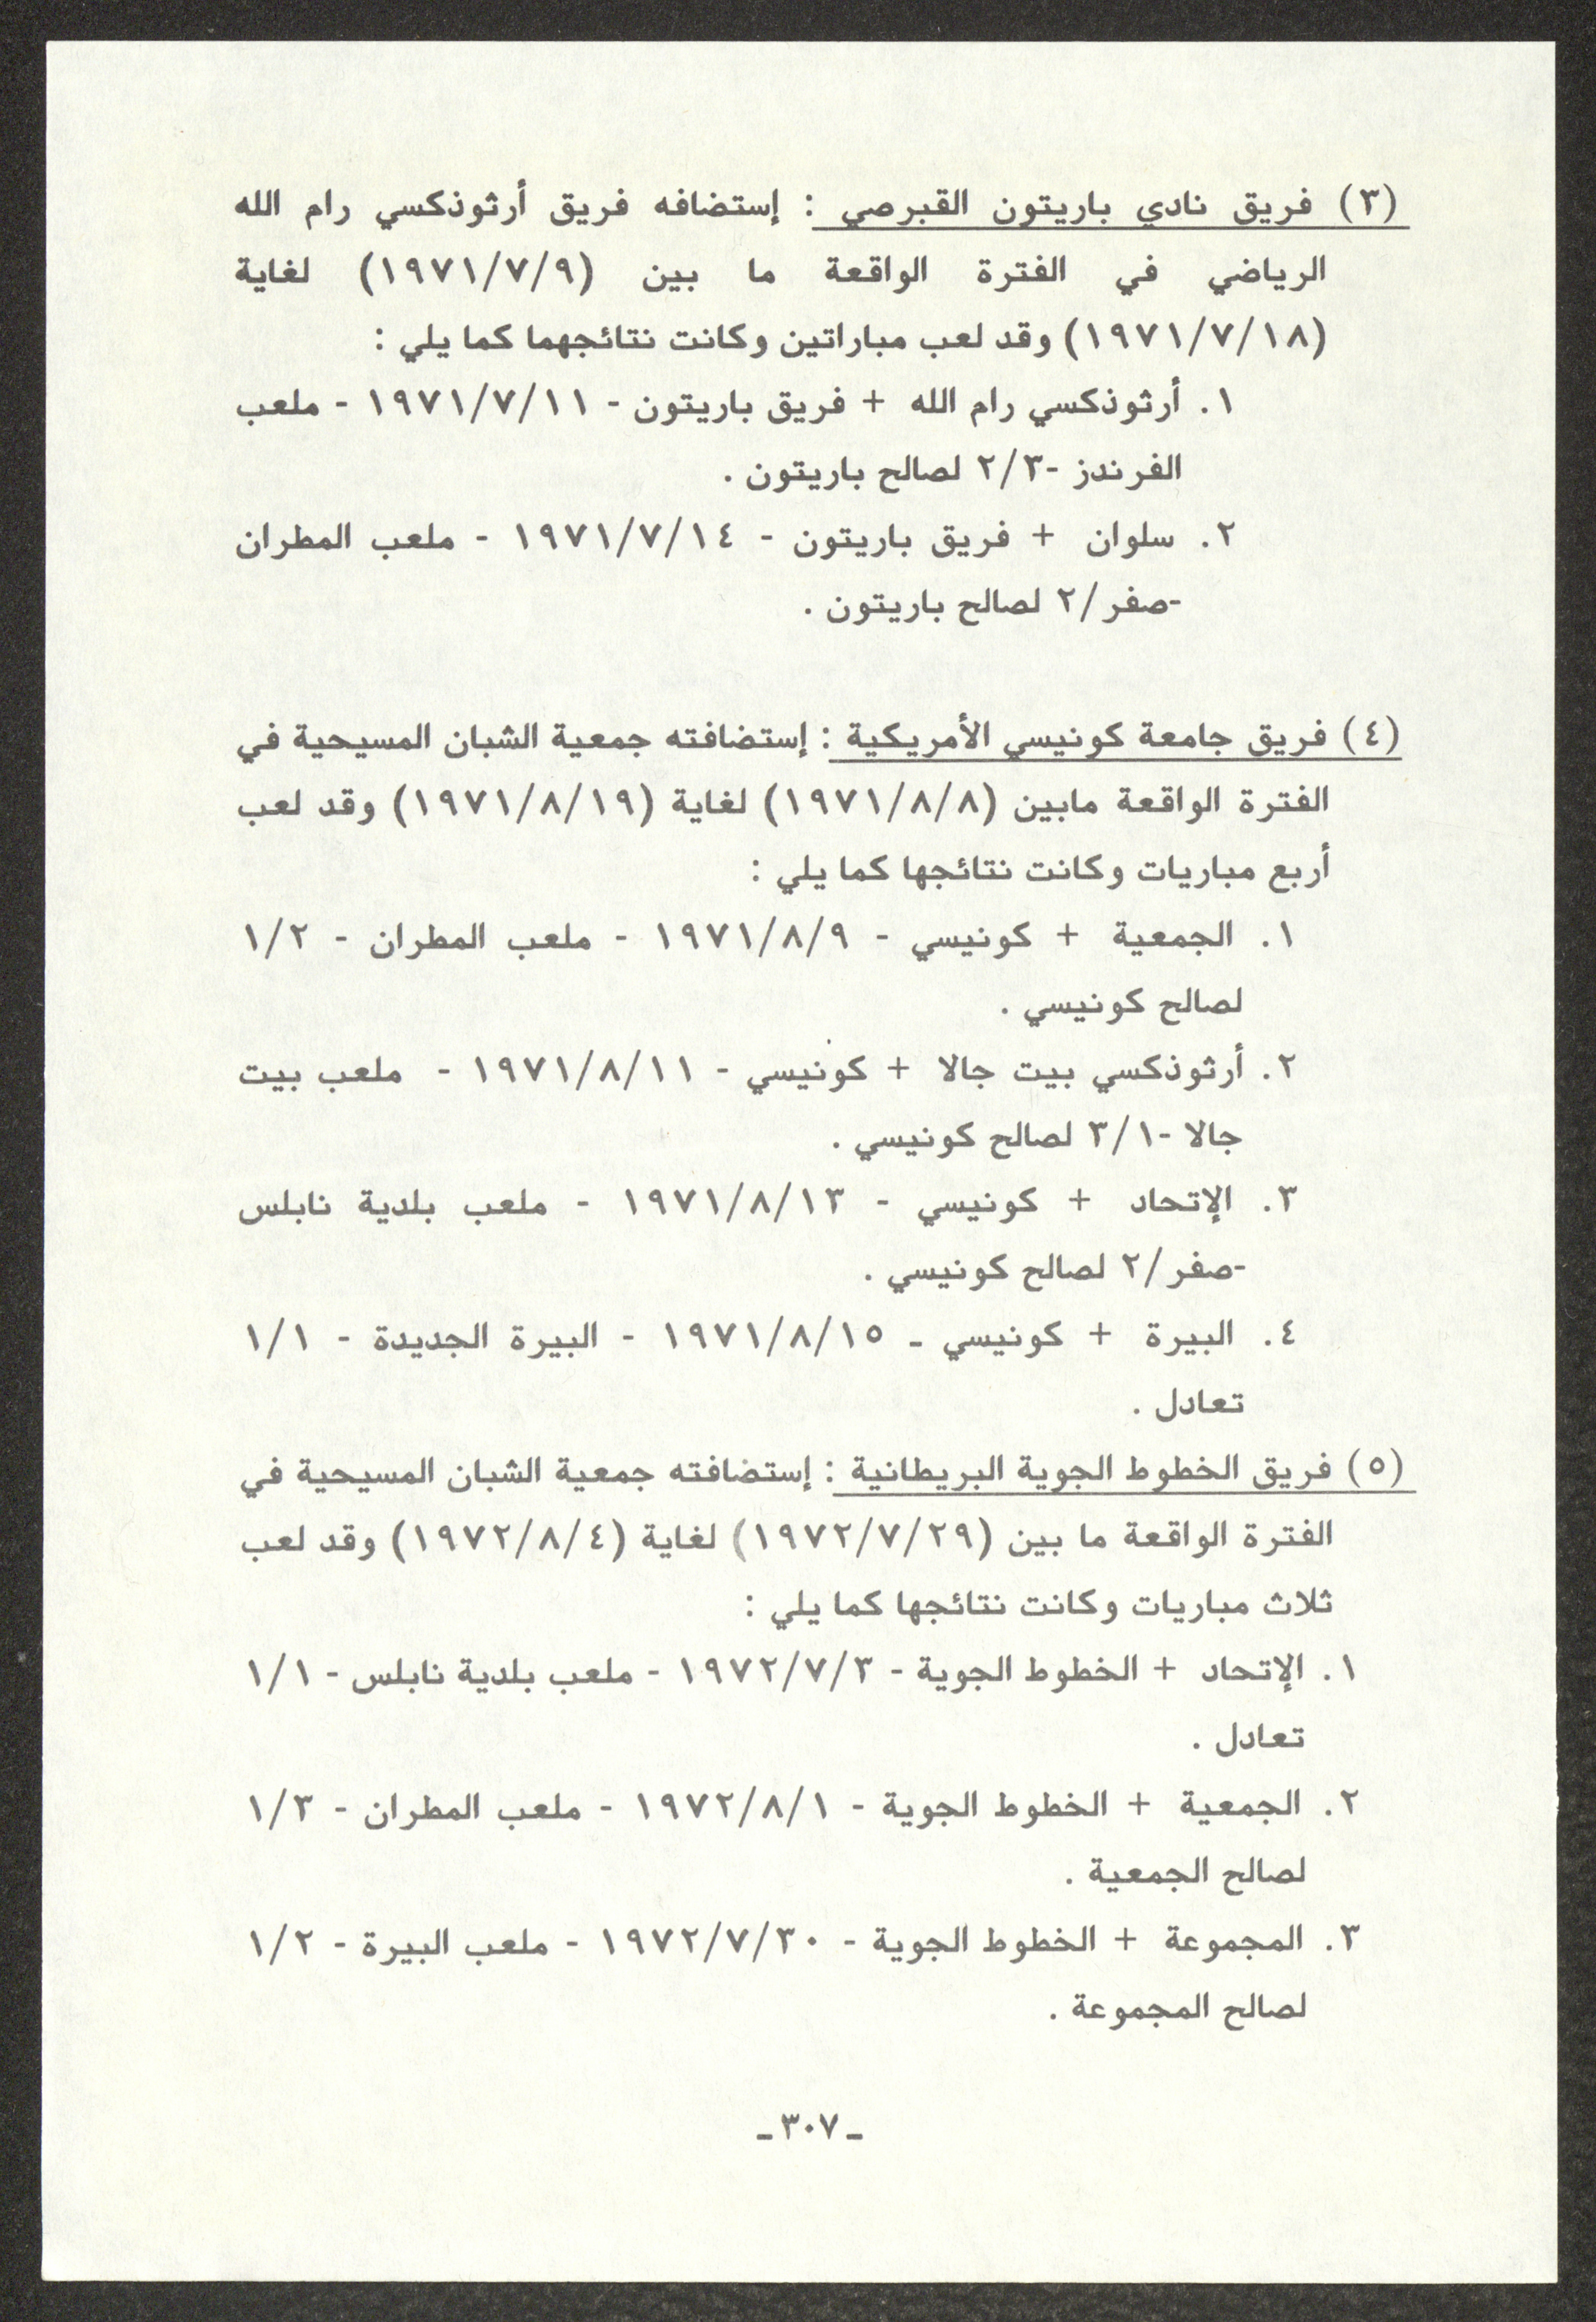 (٣) فريق نادي باريتون القبرصي : إستضافه فريق أرثوذكسي رام الله
الرياضي في الفترة الواقعة ما بين (١٩٧١/٧/٩) لغاية
(١٩٧١/٧/١٨) وقد لعب مباراتين وكانت نتائجهما كما يلي :
١. أرثوذكسي رام الله + فريق باريتون - ١٩٧١/٧/١١ - ملعب
الفرندز -٢/٣ لصالح باريتون .
٢. سلوان + فريق باريتون - ١٩٧١/٧/١٤ - ملعب المطران
-صفر/٢ لصالح باريتون .
(٤) فريق جامعة كونيسي الأمريكية : إستضافته جمعية الشبان المسيحية في
الفترة الواقعة مابين (١٩٧١/٨/٨) لغاية (١٩٧١/٨/١٩) وقد لعب
أربع مباريات وكانت نتائجها كما يلي :
١. الجمعية + كونيسي - ١٩٧١/٨/٩ - ملعب المطران - ١/٢
لصالح كونيسي .
٢. أرثوذكسي بيت جالا + كونيسي - ١٩٧١/٨/١١ - ملعب بيت
جالا -٣/١ لصالح كونيسي .
٣. الإتحاد + كونيسي - ١٩٧١/٨/١٣ - ملعب بلدية نابلس
-صفر/٢ لصالح كونيسي .
٤. البيرة + كونيسي ـ ١٩٧١/٨/١٥ - البيرة الجديدة - ١/١
تعادل .
(٥) فريق الخطوط الجوية البريطانية : إستضافته جمعية الشبان المسيحية في
الفترة الواقعة ما بين (١٩٧٢/٧/٢٩) لغاية (١٩٧٢/٨/٤) وقد لعب
ثلاث مباريات وكانت نتائجها كما يلي :
١. الإتحاد + الخطوط الجوية - ١٩٧٢/٧/٣ - ملعب بلدية نابلس - ١/١
تعادل .
٢. الجمعية + الخطوط الجوية - ١٩٧٢/٨/١ - ملعب المطران - ١/٣
لصالح الجمعية .
٣. المجموعة + الخطوط الجوية - ١٩٧٢/٧/٣٠ - ملعب البيرة - ١/٢
لصالح المجموعة .
ـ٣٠٧ـ